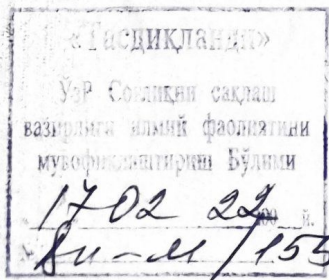 «Тасдиқланди»
ЎзР Соғлиқни сақлаш
вазирлиги илмий фаолиятини
мувофиқлаштириш Бўлими
17 02 22 200 й.
8н-м/155